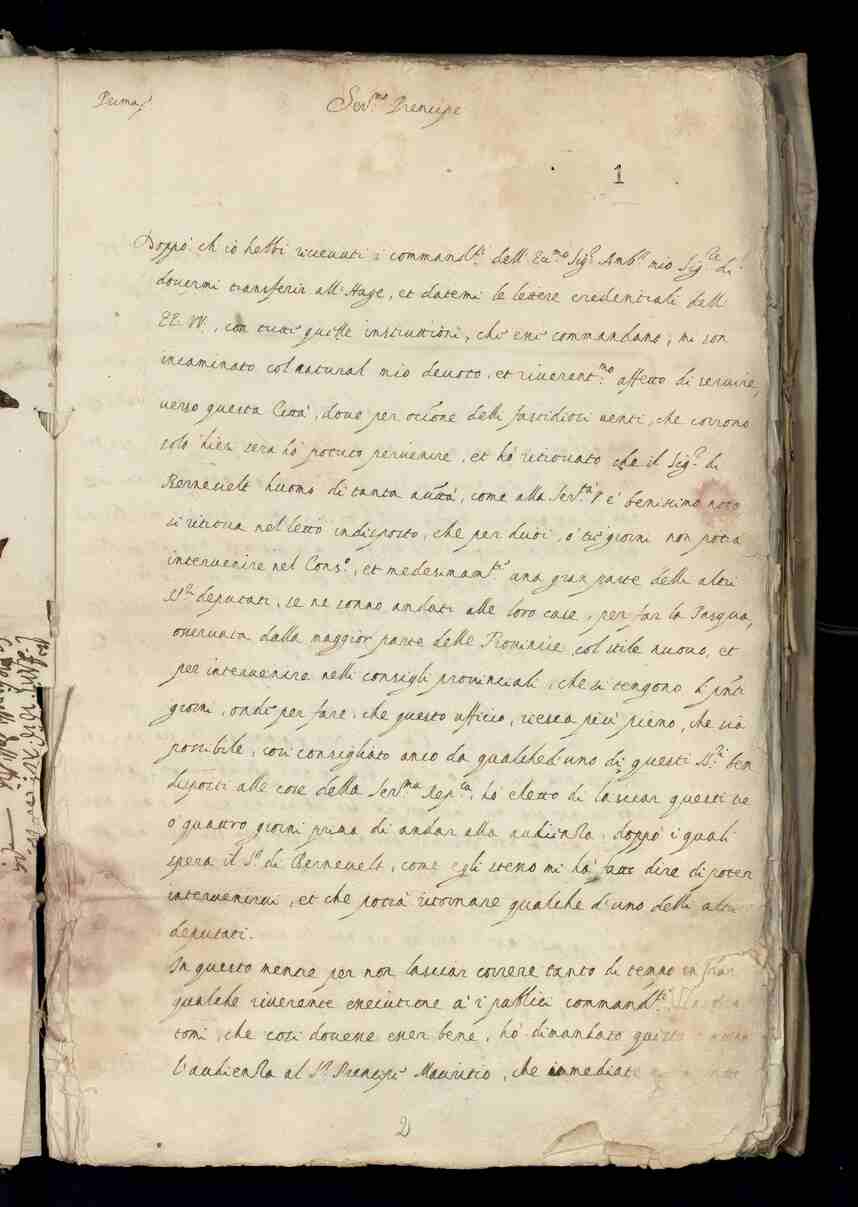 Prima
Ser.mo Prencipe
1
Doppò ch'iò hebbi ricevuti i commandti dell Ecc.mo Sigr Ambr mio Sigre di
dovermi transferir all'Haye, et datemi le lettere credentiali dell
EE. VV., con tutte quelle instruttioni, che essi commandano, mi son
incaminato col natural mio devoto, et riverent.mo affetto di servire,
verso questa Città, dove per occne delli fastidiosi venti, che corrono
solo hieri sera hò potuto pervenire, et hò ritrovato che il Sigr di
Bernevelt huomo di tanta auttà, come alla Ser.tà V. è benissimo noto
si ritrova nel letto indisposto, che per duoi, ò trè giorni non potrà
intervenire nel Conso, et medesimamte una gran parte delli altri
SSri deputati, se ne sonno andati alle loro case, per far la Pasqua,
osservata dalla maggior parte delle Provincie, col stile nuovo, et
per intervenire nelli consigli provinciali, che si tengono di pnti
giorni, onde per fare, che questo ufficio, riesca più pieno, che sia
possibile, così consigliato anco da qualched'uno di questi SSri ben
disposti alle cose della Ser.ma Repca, hò eletto di lasciar questi tre
o quattro giorni prima di andar alla audienza, doppò i quali
spera il Sr di Bernevelt, come egli stesso mi hà fatto dire di poter
intervenirvi, et che potrà ritornare qualche d'uno delli altri
deputati.
In questo mentre per non lasciar correre tanto di tempo
qualche riverente essecutione à i publici commandti
tomi, che così dovesse esser bene, hò dimandato
l'audienza al Sr Prencipe Mauritio, che immediate
2